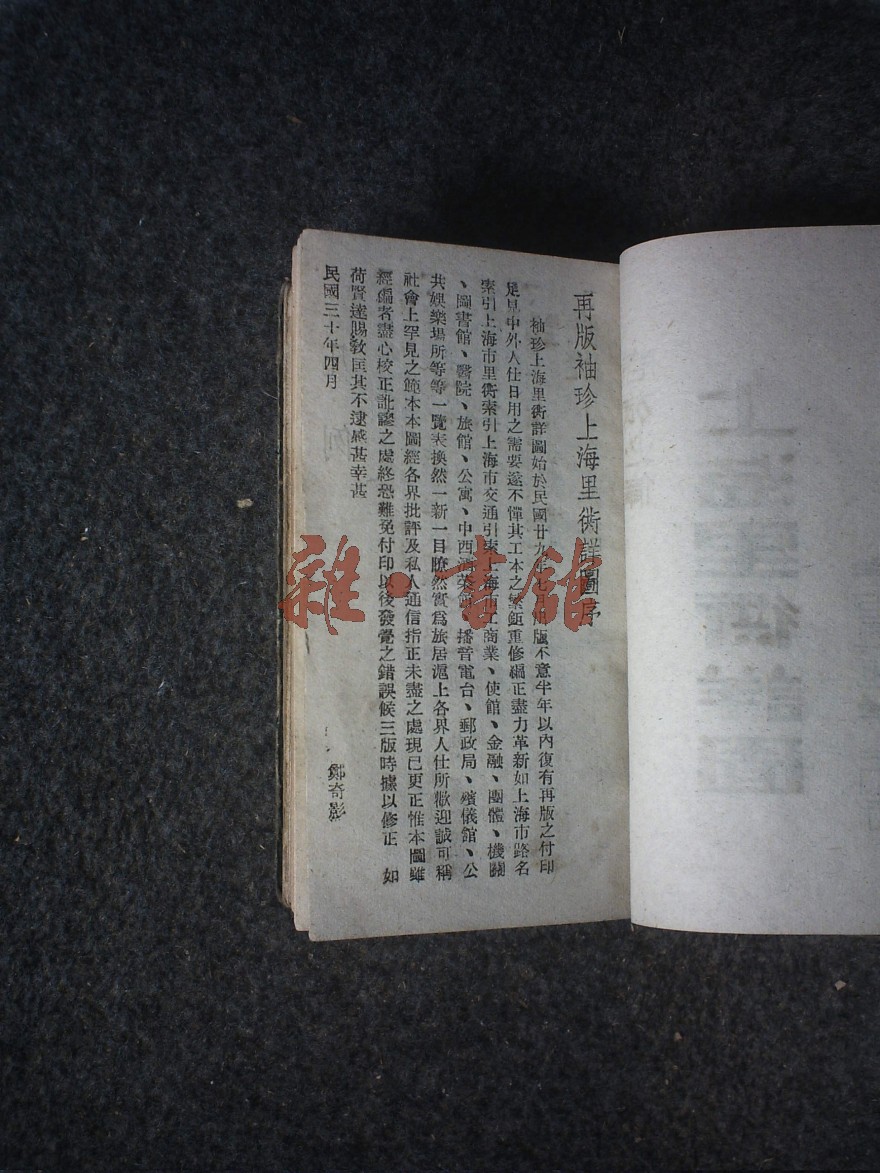 再版袖珍上海里衖詳圖序
袖珍上海里衖詳圖始於民國廿九年七月出版不意半年以內復有再版之付印
足見中外人仕日用之需要遂不憚其工本之繁鉅重修編正盡力革新如上海市路名
索引上海市里衖索引上海市交通引索上海市工商業、使館、金融、團體、機關
、圖書館、醫院、旅館、公寓、中西酒菜館、播音電台、郵政局、殯儀館、公
共娛樂場所等等一覽表換然一新一目瞭然實爲旅居滬上各界人仕所歡迎誠可稱
社會上罕見之範本本圖經各界批評及私人通信指正未盡之處現已更正惟本圖雖
經編者盡心校正訛謬之處終恐難免付印以後發覺之錯誤候三版時據以修正 如
荷賢達賜敎匡其不逮感甚幸甚
民國三十年四月
鄒奇影
雜·書館
上海里衖詳圖